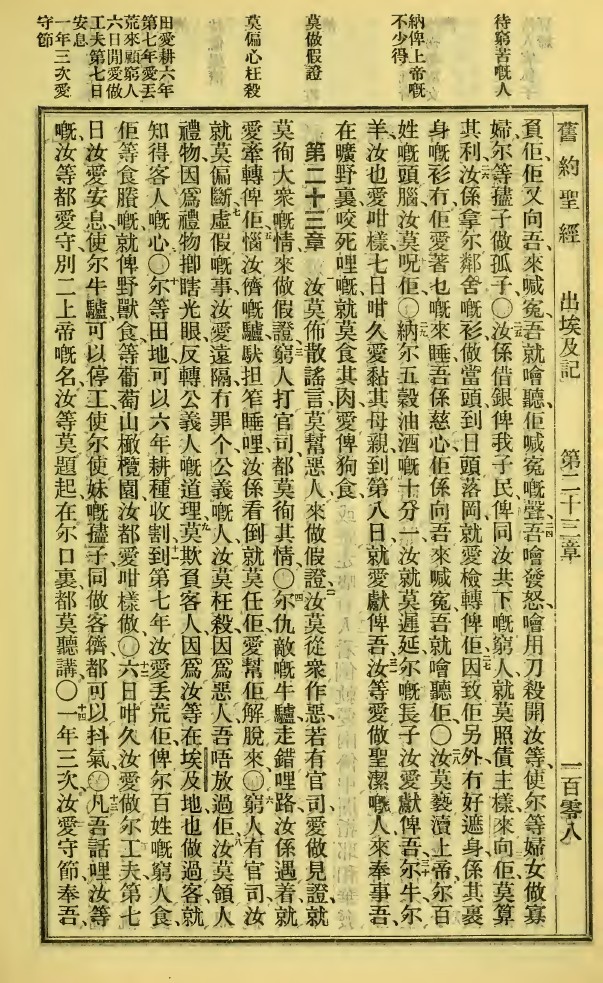 待窮苦嘅人
納俾上帝嘅
不少得
莫做假證
莫偏心枉殺
田愛耕六年
第七年愛丟
荒來顧窮人
六日閒愛做
工夫第七日
安息
一年三次愛
守節
舊約聖經 出埃及記 第二十三章 一百零八
負佢佢又向吾來喊冤吾就噲聽佢喊冤嘅聲二四吾噲發怒噲用刀殺開汝等使尔等婦女做寡
婦尔等孻子做孤子〇二五汝係借銀俾我子民俾同汝共下嘅窮人就莫照債主樣來向佢莫算
其利二六汝係拿尔鄰舍嘅衫做當頭到日頭落岡就愛檢轉俾佢二七因致佢另外冇好遮身係其裹
身嘅衫冇佢愛著乜嘅來睡吾係慈心佢係向吾來喊冤吾就噲聽佢〇二八汝莫褻瀆上帝尔百
姓嘅頭腦汝莫呪佢〇二九納尔五穀油酒嘅十分一汝就莫遲延尔嘅長子汝愛獻俾吾三十尔牛尔
羊汝也愛咁樣七日咁久愛黏其母親到第八日就愛獻俾吾三一汝等愛做聖潔嘅人來奉事吾
在曠野裏咬死哩嘅就莫食其肉愛俾狗食
第二十三章 一汝莫佈散謠言莫幫惡人來做假證二汝莫從衆作惡若有官司愛做見證就
莫徇大衆嘅情來做假證三窮人打官司都莫徇其情〇四尔仇敵嘅牛驢走錯哩路汝係遇着就
愛牽轉俾佢五惱汝儕嘅驢馱担笮睡哩汝係看倒就莫任佢愛幫佢解脫來〇六窮人有官司汝
就莫偏斷七虛假嘅事汝愛遠隔冇罪个公義嘅人汝莫枉殺因爲惡人吾唔放過佢八汝莫領人
禮物因爲禮物揤瞎光眼反轉公義人嘅道理九莫欺負客人因爲汝等在埃及地也做過客就
知得客人嘅心〇十尔等田地可以六年耕種收割十一到第七年汝愛丟荒佢俾尔百姓嘅窮人食
佢等食賸嘅就俾野獸食等葡萄山橄欖園汝都愛咁樣做〇十二六日咁久汝愛做尔工夫第七
日汝愛安息使尔牛驢可以停工使尔使妹嘅孻子同做客儕都可以抖氣〇十三凡吾話哩汝等
嘅汝等都愛守別二上帝嘅名汝等莫題起在尔口裏都莫聽講〇十四一年三次汝愛守節奉吾